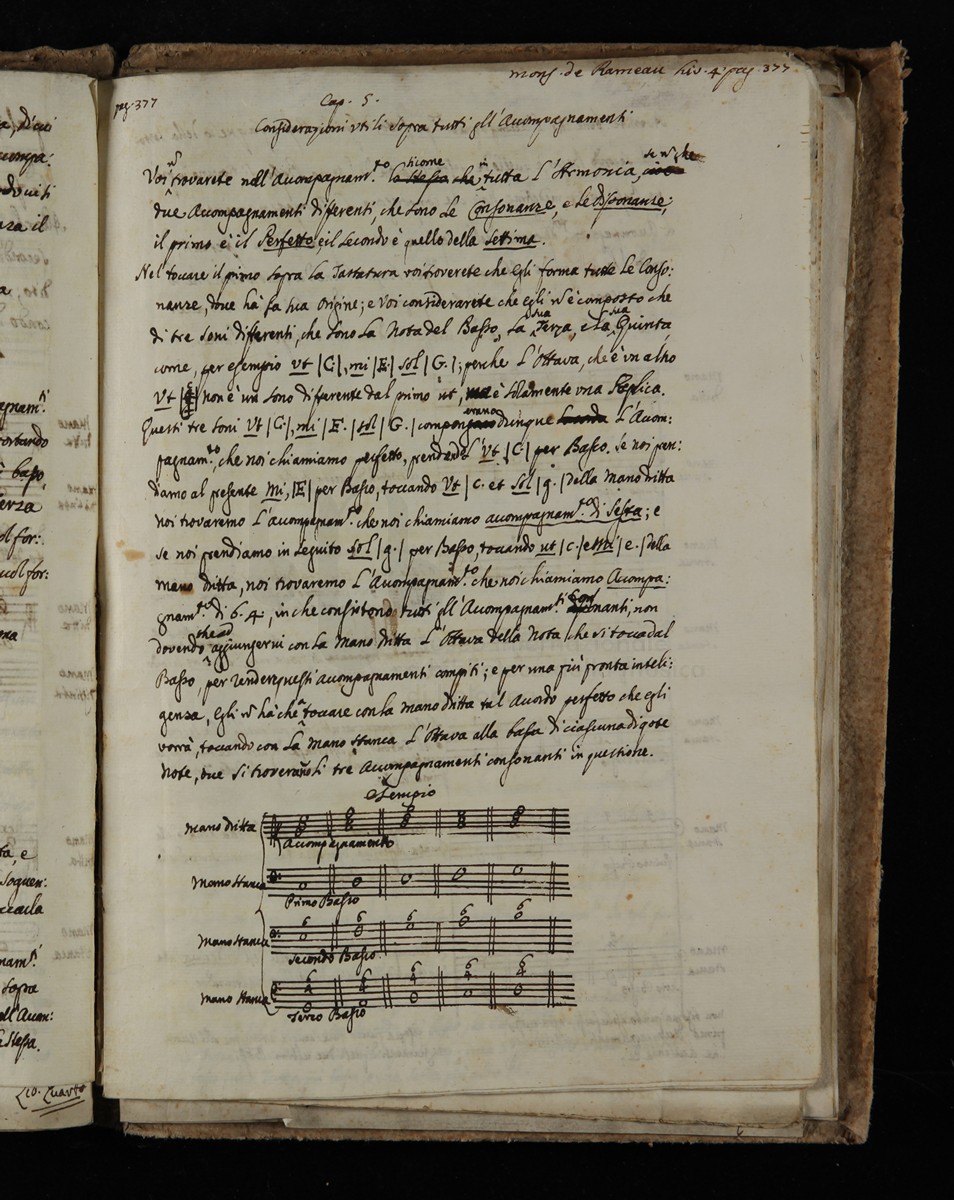 mons. de Rameau Liv. 4. pag. 377
pag. 377
Cap. 5.
Considerazioni utili sopra tutti gll'Accompagnamenti
Voi ñ trovarete nell'Accompagnam.to la stessa che siccome in tutta L'Armonia, se ñ che
dûe Accompagnamenti differenti, che sono Le Consonanze, e Le Dissonanze;
il primo è il Perfetto, e il secondo è quello della settima.
Nel toccare il primo sopra La Tastatura voi troverete che egli forma tutte Le Conso:
nanze, doue hà la sua origine; e Voi considerarete che egli ñ è composto che
di tre soni differenti, che sono La Nota del Basso, La sua Terza, e La sua Quinta
come, per esempio ut |C.|, mi |E.| sol |G.|; perche L'Ottava, che è un altro
Ut non è un sono differente dal primo ut, ma è solamente una Replica.
Questi tre soni Ut |C.|, mi |E.| sol |G.| componerano dunque L'Acom:
pagnam.to che noi chiamiamo perfetto, prendendo l'Ut |C| per Basso. se noi pren:
diamo al presente Mi, |E| per Basso, toccando Ut |c. et Sol |g.| della Mano dritta
noi trovaremo L'acompagnam.to che noi chiamiamo accompagnam.to di sesta; e
se noi prendiamo in seguito sol |g.| per Basso, toccando ut |c.| e Mi |e.| della
mano dritta, noi trovaremo L'Acompagnam.to che noi chiamiamo Acompa:
gnam.to di 6. 4., in che consistono tutti gll'Acompagnam.ti Consonanti, non
dovendo che ad aggiungervi con La mano dritta L'Ottava della Nota che si tocca dal
Basso, per render questi accompagnamenti compiti; e per una più pronta inteli:
genza, Egli ñ hà che toccare con La mano dritta tal Acordo perfetto che egli
vorrà, toccando con La mano stanca L'Ottava alla bassa di ciascuna di qste
Note, due si troveranoli tre Accompagnamenti consonanti in questione.
Esempio
Mano dritta
Accompagnamento
Mano stanca
Primo Basso
6 6 6 6 6
Mano stanca
Secondo Basso
6 6 6 6 6
4 4 4 4 4
Mano stanca
Terzo Basso